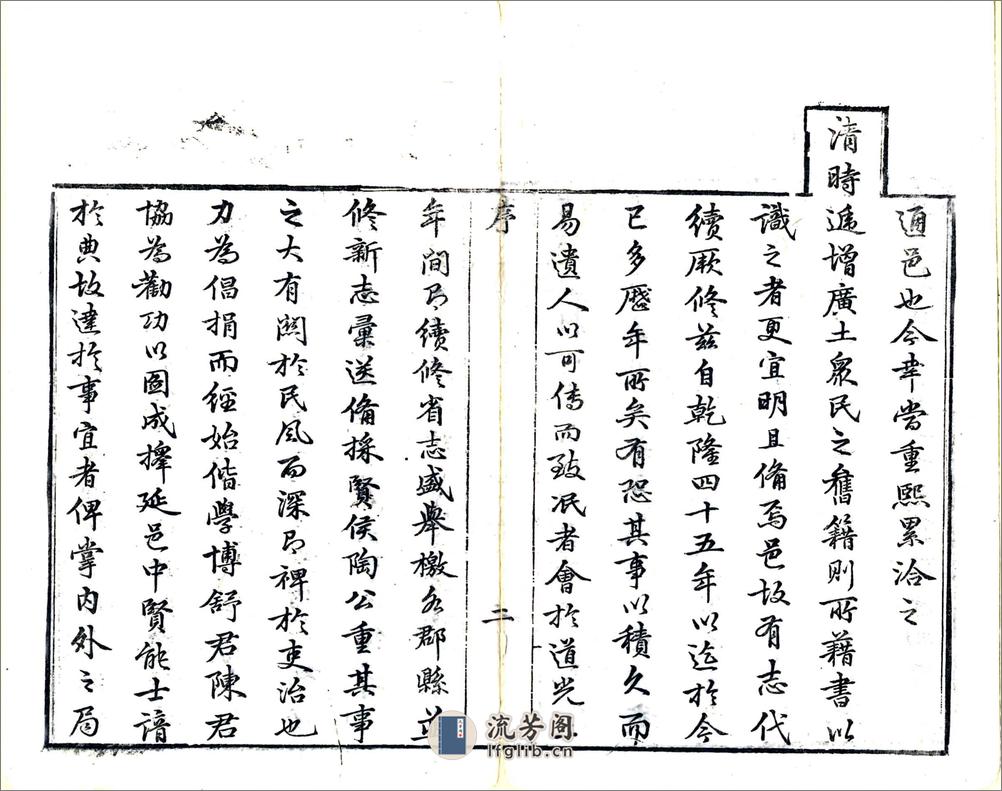 通邑也今幸當重熙累洽之
清時遞增廣土衆民之舊籍則所藉書以
識之者更宜明且備焉邑故有志代
續厥修兹自乾隆四十五年以迄於今
已多歷年所矣有恐其事以積久而
易遺人以可傳而致泯者會於道光
序
二
年間即續修省志盛舉檄各郡縣並
修新志彙送備採賢侯陶公重其事
之大有關於民風而深即裨於吏治也
力為倡捐而經始偕學博舒君陳君
協為勸功以圖成擇延邑中賢能士諳
於典故達於事宜者俾掌内外之局
流芳阁
lfglib.cn